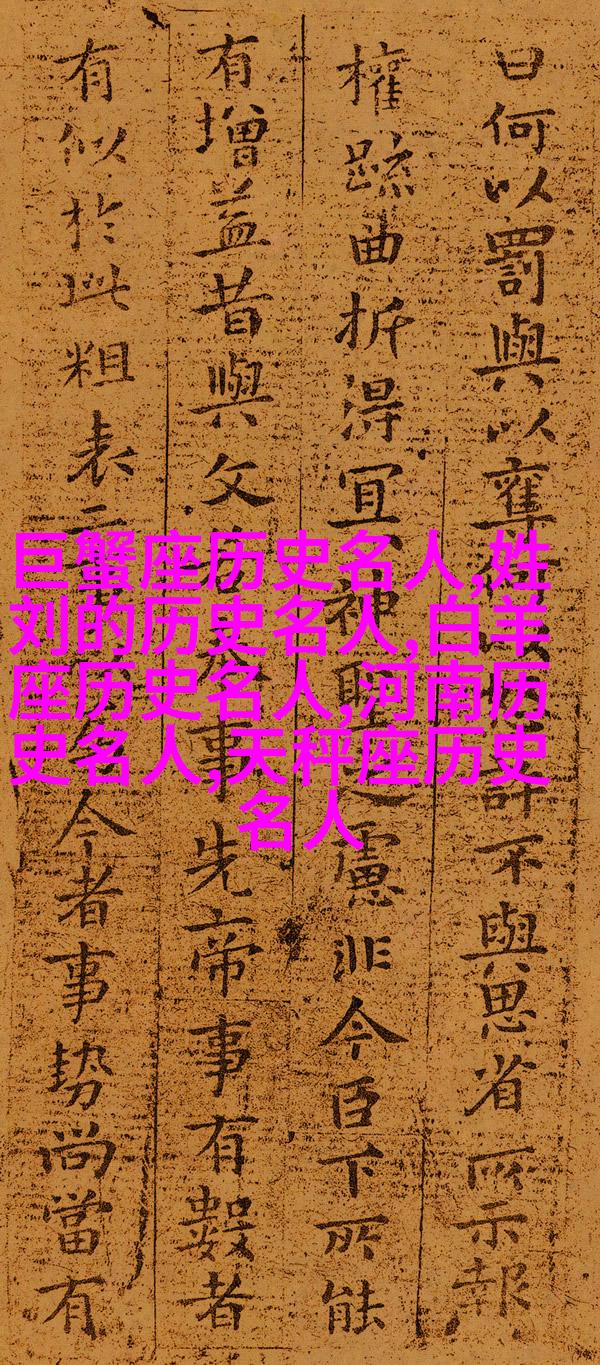 曰何以罰與以奪不與思省所示報
權疏曲折得宜神聖之慮非今臣下所能
有增益昔與文事先帝事有數者
有似於此粗表二今者事勢尚當有
巨蟹座历史名人,姓
刘的历史名人,白羊
座历史名人,河南历
史名人,天秤座历史
名人